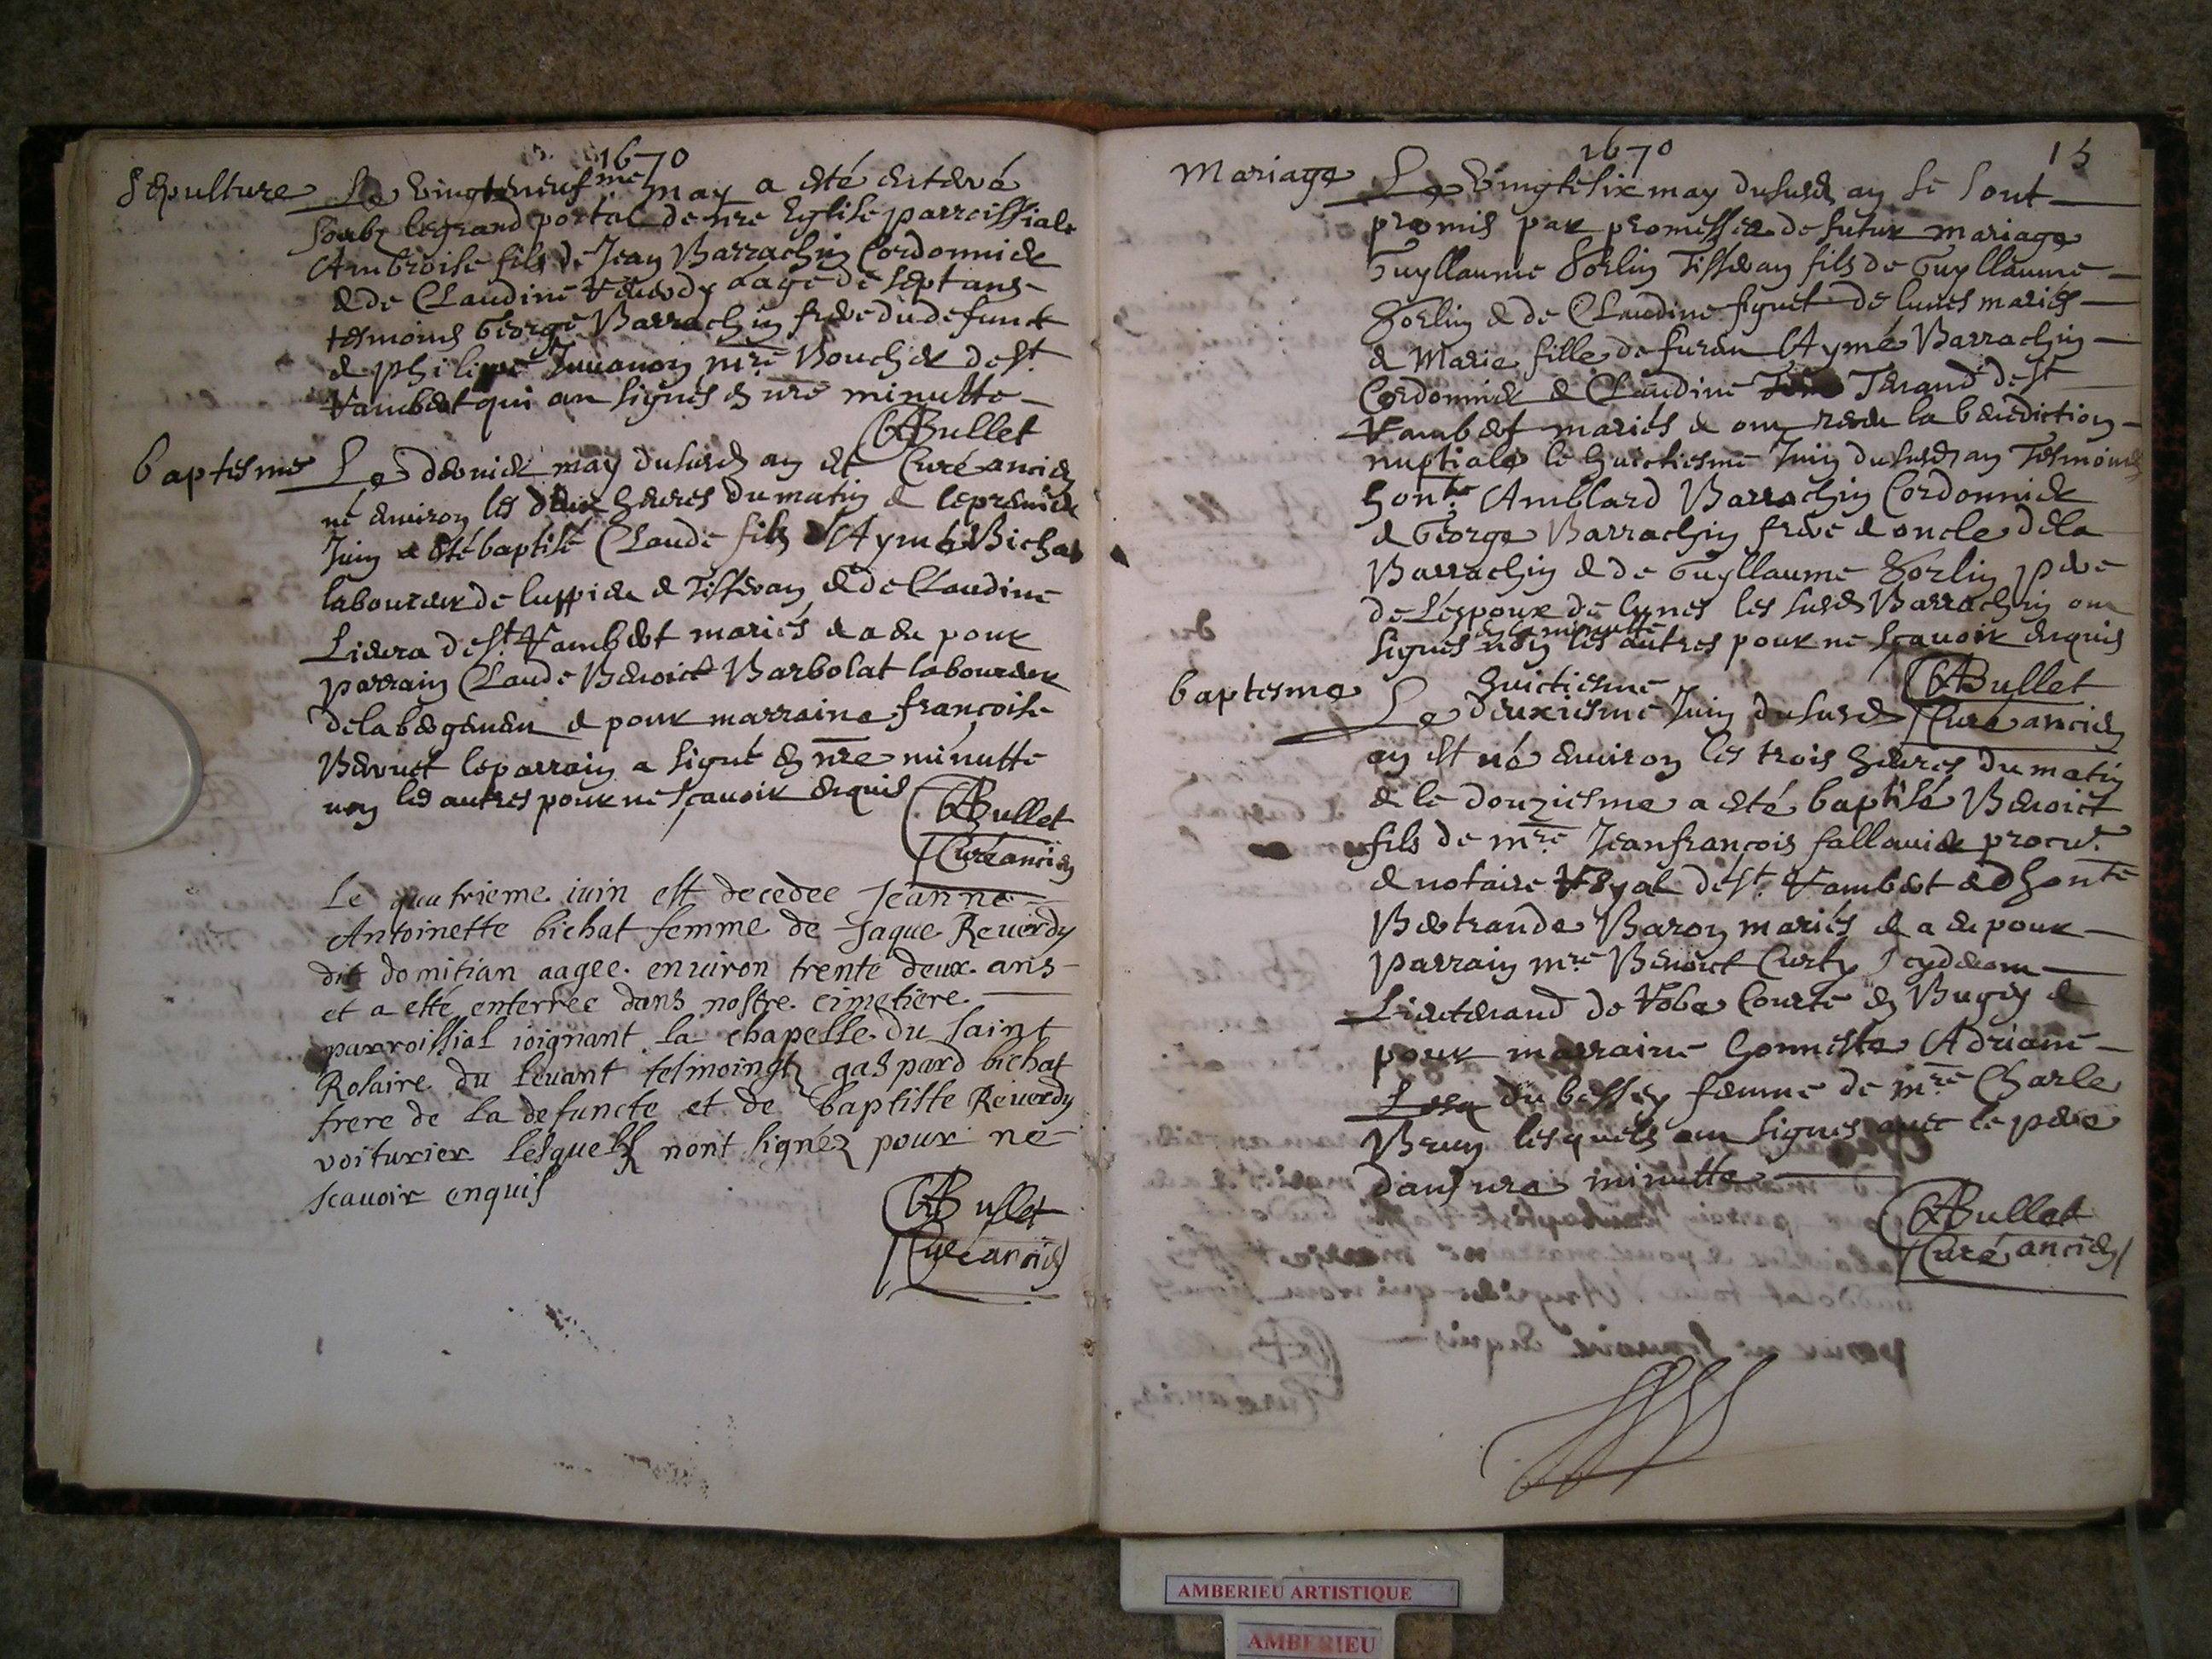 1670
Sepulture Le vingtneufme may a esté enterré
soubz le grand portal de nre Eglise parroissiale
Ambroise fils de Jean Barrachin Cordonnier
& de Claudine Reverdy aagé de sept ans
tesmoins George Barrachin frere du defunct
& Philippe Juuanon mre Boucher de St
Rambert qui on signés en nre minutte
ABullet
Curé ancien
baptesme Le dernier may du susd an est
né environ les deux heures du matin & le premier
Juin a esté baptisé Claude fils d'Aymé Bichat
laboureur de luppieu & Tisseran & de Claudine
Liévra de St Rambert mariés & a eu pour
parrain Claude Benoict Barbolat laboureur
de la bergeneu & pour marraine françoise
Bernet le parrain a signé en nre minutte
non les autres pour ne sçavoir enquis
ABullet
Curé ancien
Le quatrieme iuin est decedee Jeanne
Antoinette bichat femme de Jaque Reuerdy
dit domitian aagee enuiron trente deux ans
et a esté enterrée dans nostre cimetiere
parroissial ioignant la chapelle du saint
Rosaire du leuant tesmoingtz gaspard bichat
frere de la defuncte et de baptiste Reuerdy
voiturier lesquelz nont signéz pour ne
scauoir enquis
ABullet
Curé ancien
1670
15
Mariage Le vingtesix may du susd an se sont
promis par promesses de futur mariage
Guyllaume Gorlin Tisseran fils de Guyllaume
Gorlin & de Claudine figuet de lunes mariés
& Marie fille de fureu Aymé Barrachin
Cordonnier & Claudine Tenand de St
Rambert mariés & on receu la benediction
nuptiale le huictiesme Juin du susd an Tesmoins
honble Amblard Barrachin Cordonnier
& George Barrachin frere & oncle de la
Barrachin & de Guyllaume Gorlin pere
de l'espoux de lynes les susds Barrachin on
signés en la minutte non les autres pour ne sçavoir enquis
ABullet
Curé ancien
baptesme Le deuxiesme huictiesme Juin du susd
an est né environ les trois heures du matin
& le douziesme a esté baptisé Benoict
fils de mre Jeanfrançois fallavier procur
& notaire Royal de St Rambert & d honte
Bertrande Baron mariés & a eu pour
parrain mre Benoict Curty
Lieutenand de Robe Courte en Bugey &
pour marraine honneste Adriane
du bessey femme de mre Charle
Brun lesquels on signés avec le pere
dans nre minutte
ABullet
Curé ancien
AMBERIEU ARTISTIQUE
AMBERIEU